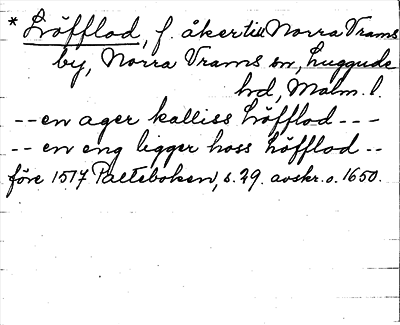 * Löfflod, f. åker till Norra Vrams
by, Norra Vrams sn, Luggude
hd, Malm. l.
-- en ager kalliss Löfflod ---
-- en eng ligger hoss Löfflod --
före 1517 Palteboken, s. 29. avskr. o. 1650.